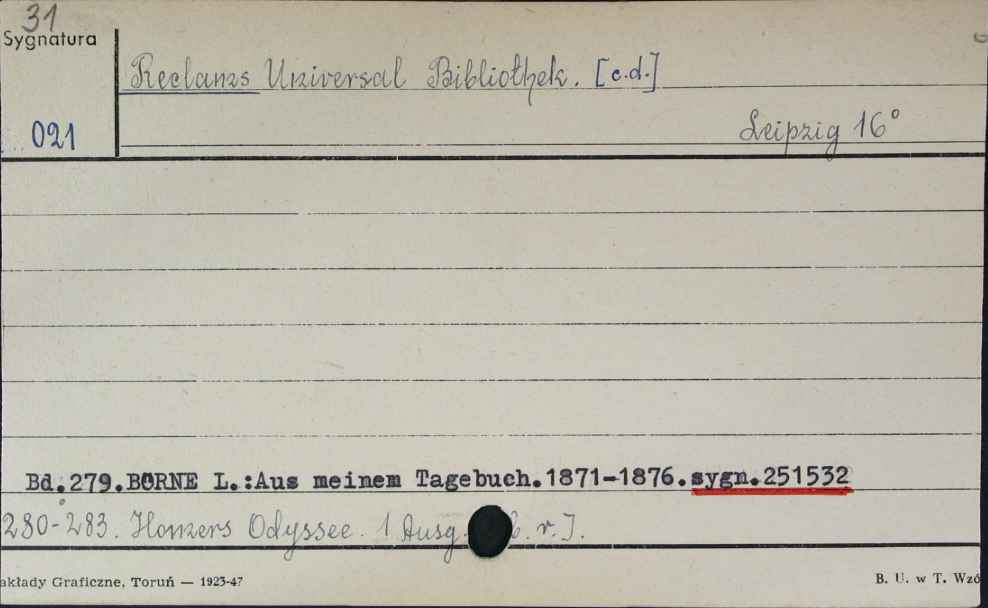 31
Sygnatura
Reclams Universal Bibliothek. [c.d.]
021
Leipzig 16°
Bd.279.BÖRNE L.:Aus meinem Tagebuch.1871-1876.sygn.251532
280-283. Homers Odyssee. 1 Ausg. r.].
akłady Graficzne, Toruń — 1923-47
B. U. w T. Wzó